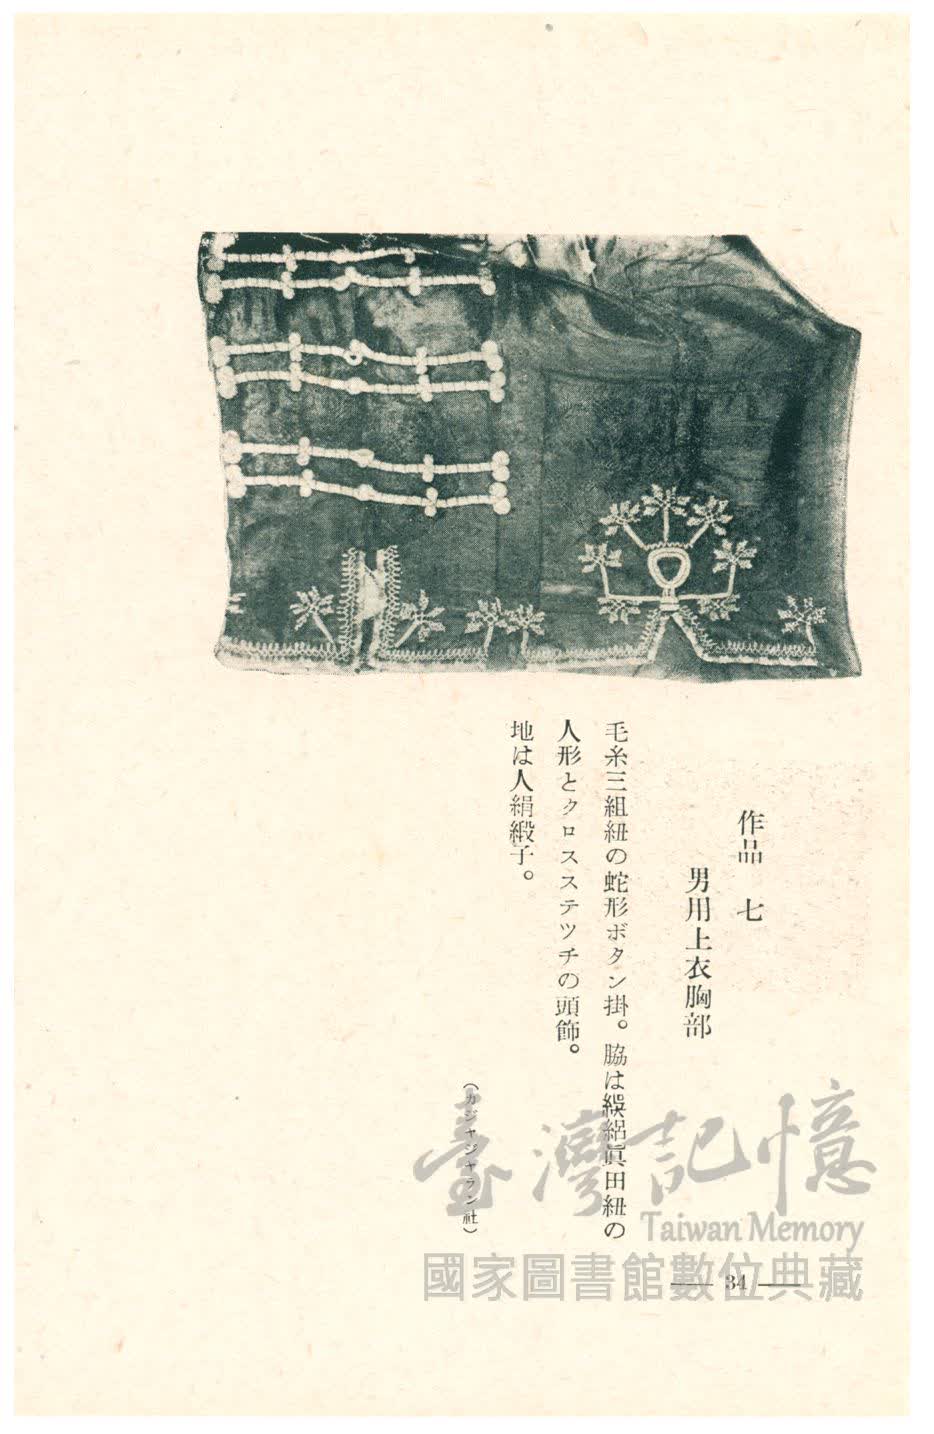 作品 七
男用上衣胸部
毛糸三組紐の蛇形ボタン掛。脇は緩絽眞田紐の
人形とクロスステツチの頭飾。
地は人絹緞子。
(カジヤジヤラン社)
34
臺灣記憶
Taiwan Memory
國家圖書館數位典藏